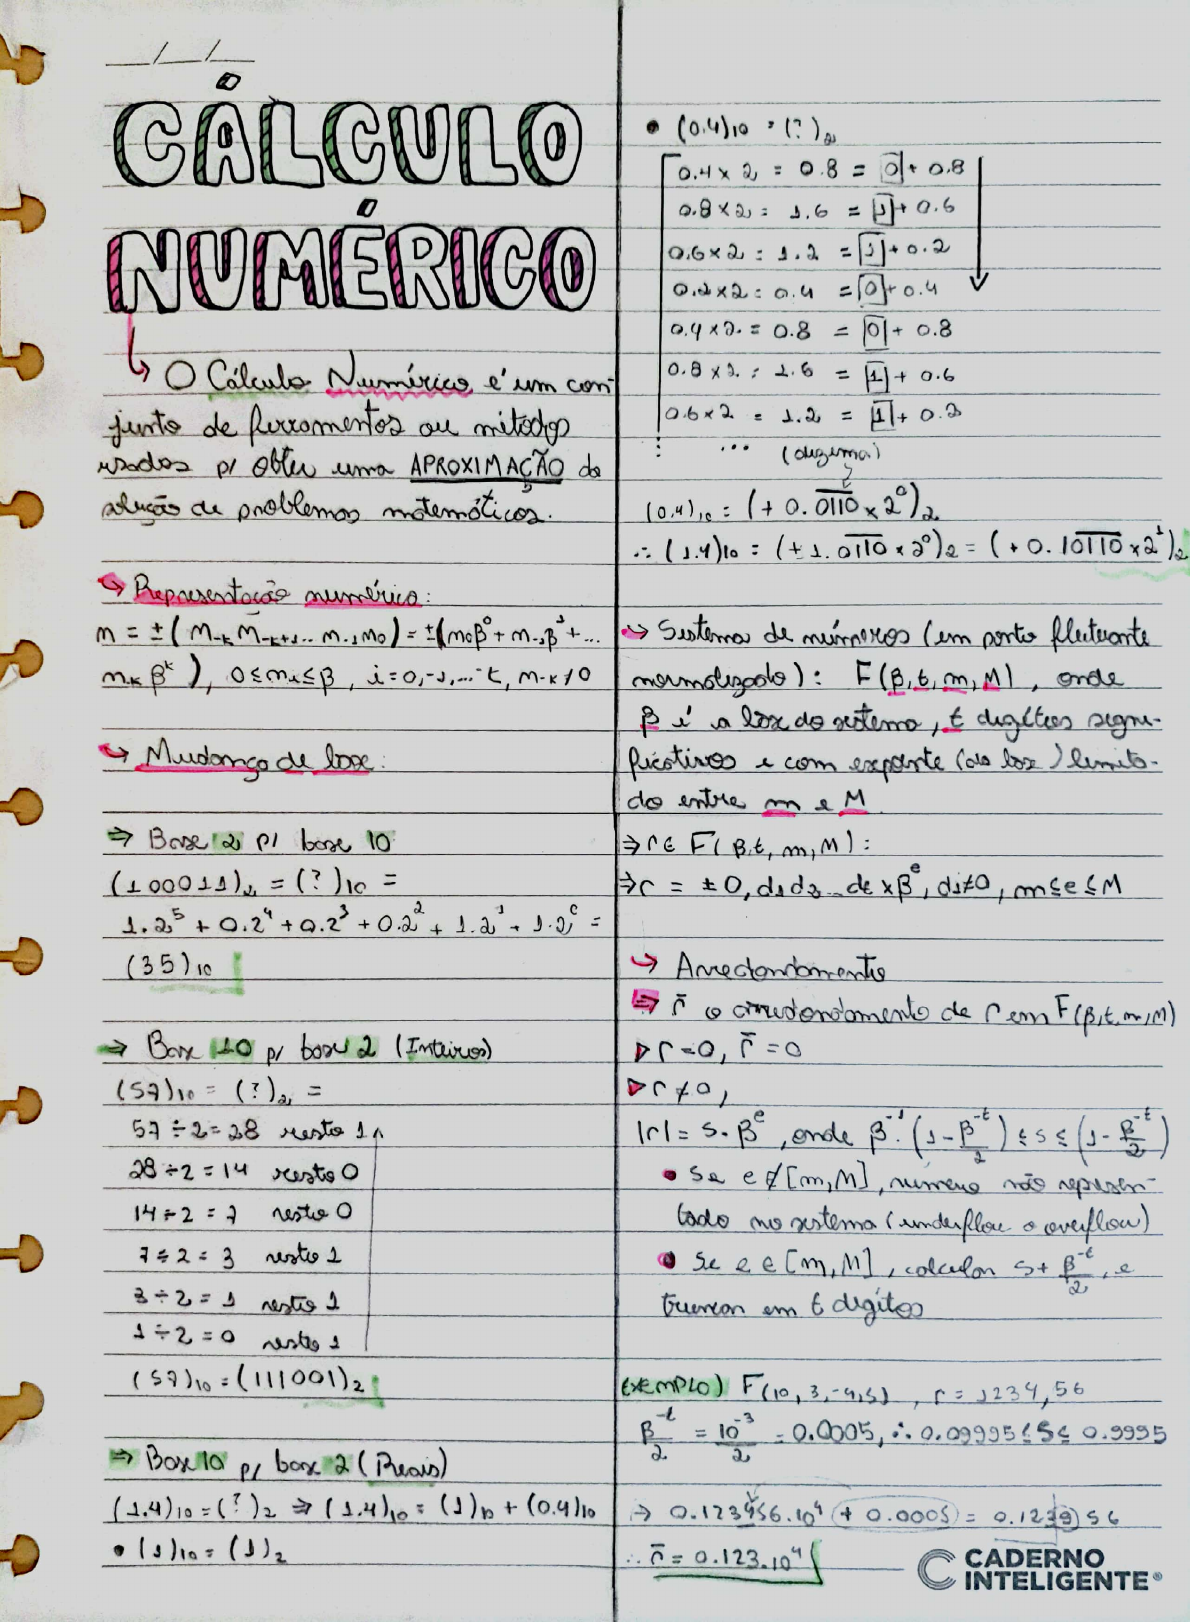 __/__/__
CÁLCULO
NUMÉRICO
↳ O Cálculo Numérico é um con-
junto de ferramentas ou métodos
usados p/ obter uma APROXIMAÇÃO da
solução de problemas matemáticos.
↳ Representação numérica:
m = ±(m-k m-k+1... m-1 m0) = ±(m0β⁰ + m-1β¹ + ...
m-k βᵏ), 0≤mi≤β, i=0,-1,...-k, m-k≠0
↳ Mudança de base:
⇒ Base 2 p/ base 10
(100011)₂ = (?)₁₀ =
1.2⁵ + 0.2⁴ + 0.2³ + 0.2² + 1.2¹ + 1.2⁰ =
(35)₁₀
⇒ Base 10 p/ base 2 (Inteiros)
(57)₁₀ = (?)₂ =
57 ÷ 2 = 28 resto 1
28 ÷ 2 = 14 resto 0
14 ÷ 2 = 7 resto 0
7 ÷ 2 = 3 resto 1
3 ÷ 2 = 1 resto 1
1 ÷ 2 = 0 resto 1
(57)₁₀ = (111001)₂
⇒ Base 10 p/ base 2 (Reais)
(1.4)₁₀ = (?)₂ ⇒ (1.4)₁₀ = (1)₁₀ + (0.4)₁₀
• (1)₁₀ = (1)₂
• (0.4)₁₀ = (?)₂
0.4 × 2 = 0.8 = 0 + 0.8
0.8 × 2 = 1.6 = 1 + 0.6
0.6 × 2 = 1.2 = 1 + 0.2
0.2 × 2 = 0.4 = 0 + 0.4
0.4 × 2 = 0.8 = 0 + 0.8
0.8 × 2 = 1.6 = 1 + 0.6
0.6 × 2 = 1.2 = 1 + 0.2
⋮ ... (dízima) ⋮
(0.4)₁₀ = (+ 0.0110 × 2⁰)₂
∴ (1.4)₁₀ = (+ 1.0110 × 2⁰)₂ = (+ 0.10110 × 2¹)₂
↳ Sistema de números (em ponto flutuante
normalizado): F(β, t, m, M), onde
β é a base do sistema, t dígitos signi-
ficativos e com expoente (da base) limita-
do entre m e M
⇒ r ∈ F(β, t, m, M):
⇒ r = ± 0, d1d2... de × βᵉ, d1≠0, m ≤ e ≤ M
↳ Arredondamento
⇒ r̄ o arredondamento de r em F(β, t, m, M)
▷ r = 0, r̄ = 0
▷ r ≠ 0,
|r| = s · βᵉ, onde β⁻¹·(1 - β⁻ᵗ/2) ≤ s ≤ (1 - β⁻ᵗ/2)
• Se e ∉ [m, M], número não represen-
tado no sistema (underflow o overflow)
• Se e ∈ [m, M], calcular s + β⁻ᵗ/2, e
truncar em t dígitos
EXEMPLO) F(10, 3, -4, 5), r = 1234,56
β⁻ᵗ/2 = 10⁻³/2 = 0.0005, ∴ 0.09995 ≤ s ≤ 0.9995
→ 0.123456.10⁴ + 0.0005 = 0.123956
∴ r̄ = 0.123.10⁴
CADERNO
INTELIGENTE®